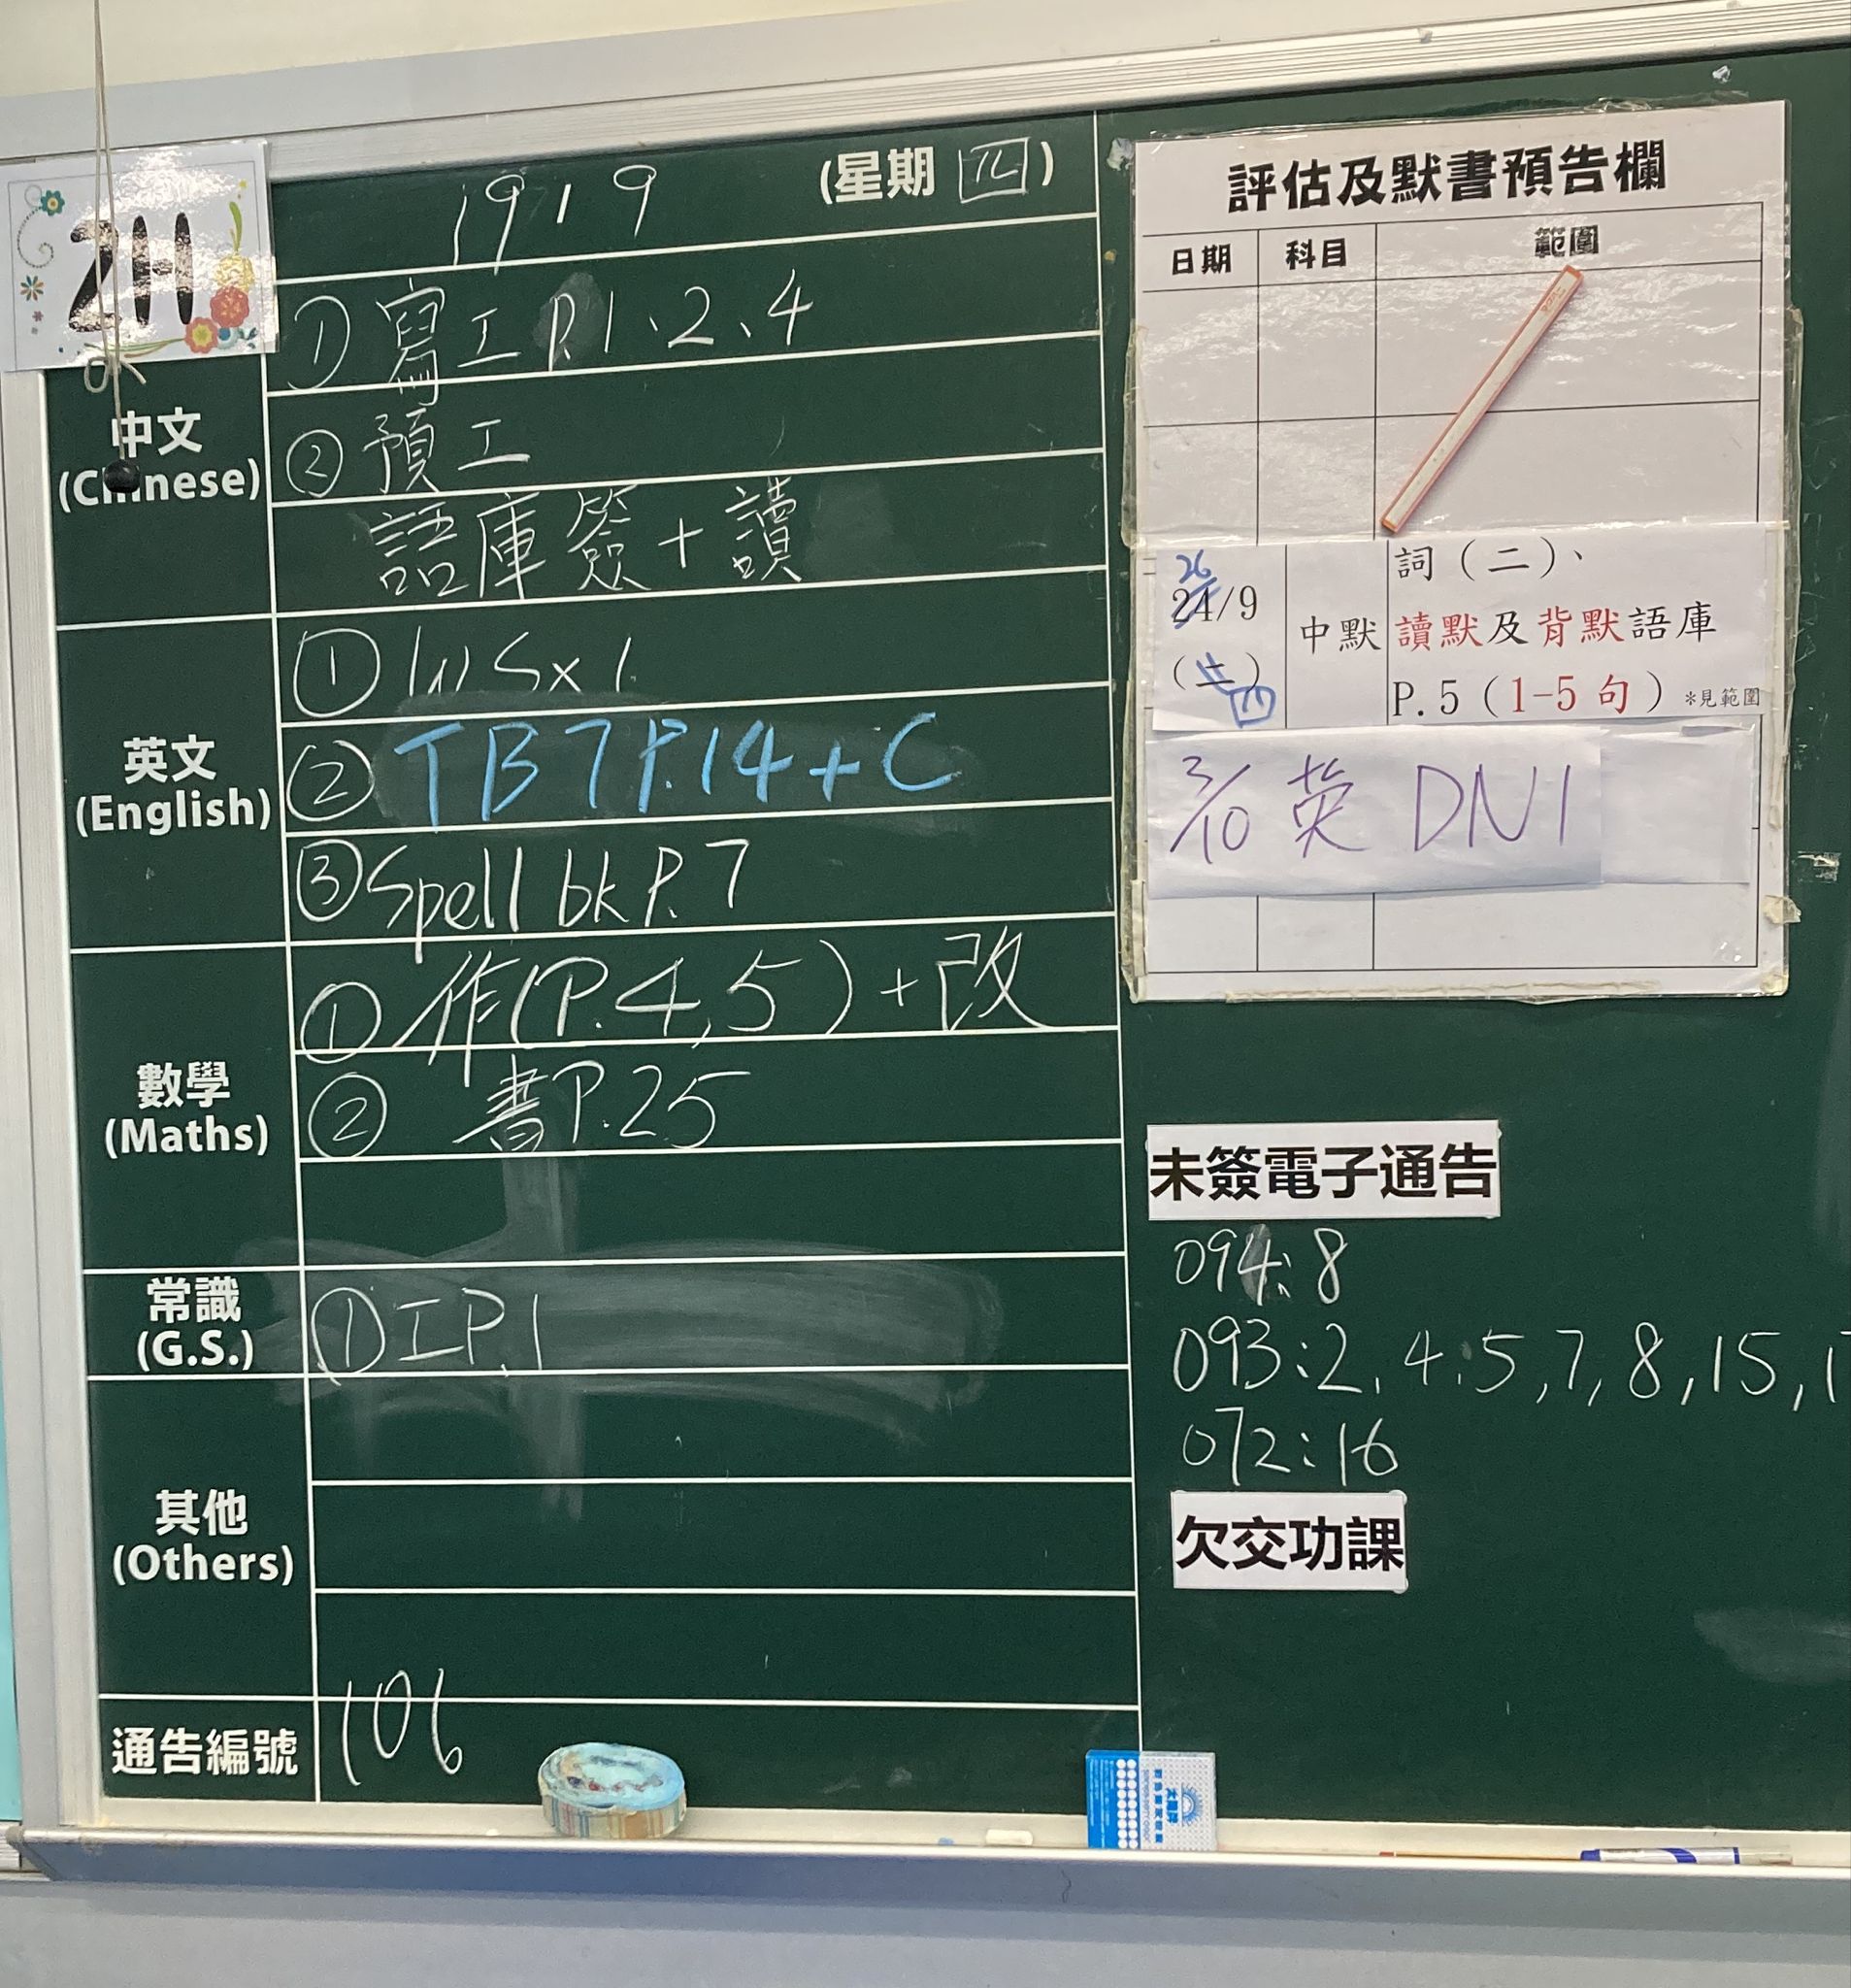 2H
19 1 9 (星期 四)
中文
(Chinese)
① 寫工 P.1、2、4
② 預工
語庫簽+讀
英文
(English)
① WS x 1
② TB 7 P.14 + C
③ Spell bk P.7
數學
(Maths)
① 作(P.4,5)+改
② 書P.25
常識
(G.S.)
① 工P.1
其他
(Others)
通告編號
106
評估及默書預告欄
日期 科目 範圍
26
24/9
(二)
四
中默
詞(二)、
讀默及背默語庫
P.5(1-5句)*見範圍
3/10 英 DN1
未簽電子通告
094: 8
093: 2, 4, 5, 7, 8, 15, 1
072: 16
欠交功課